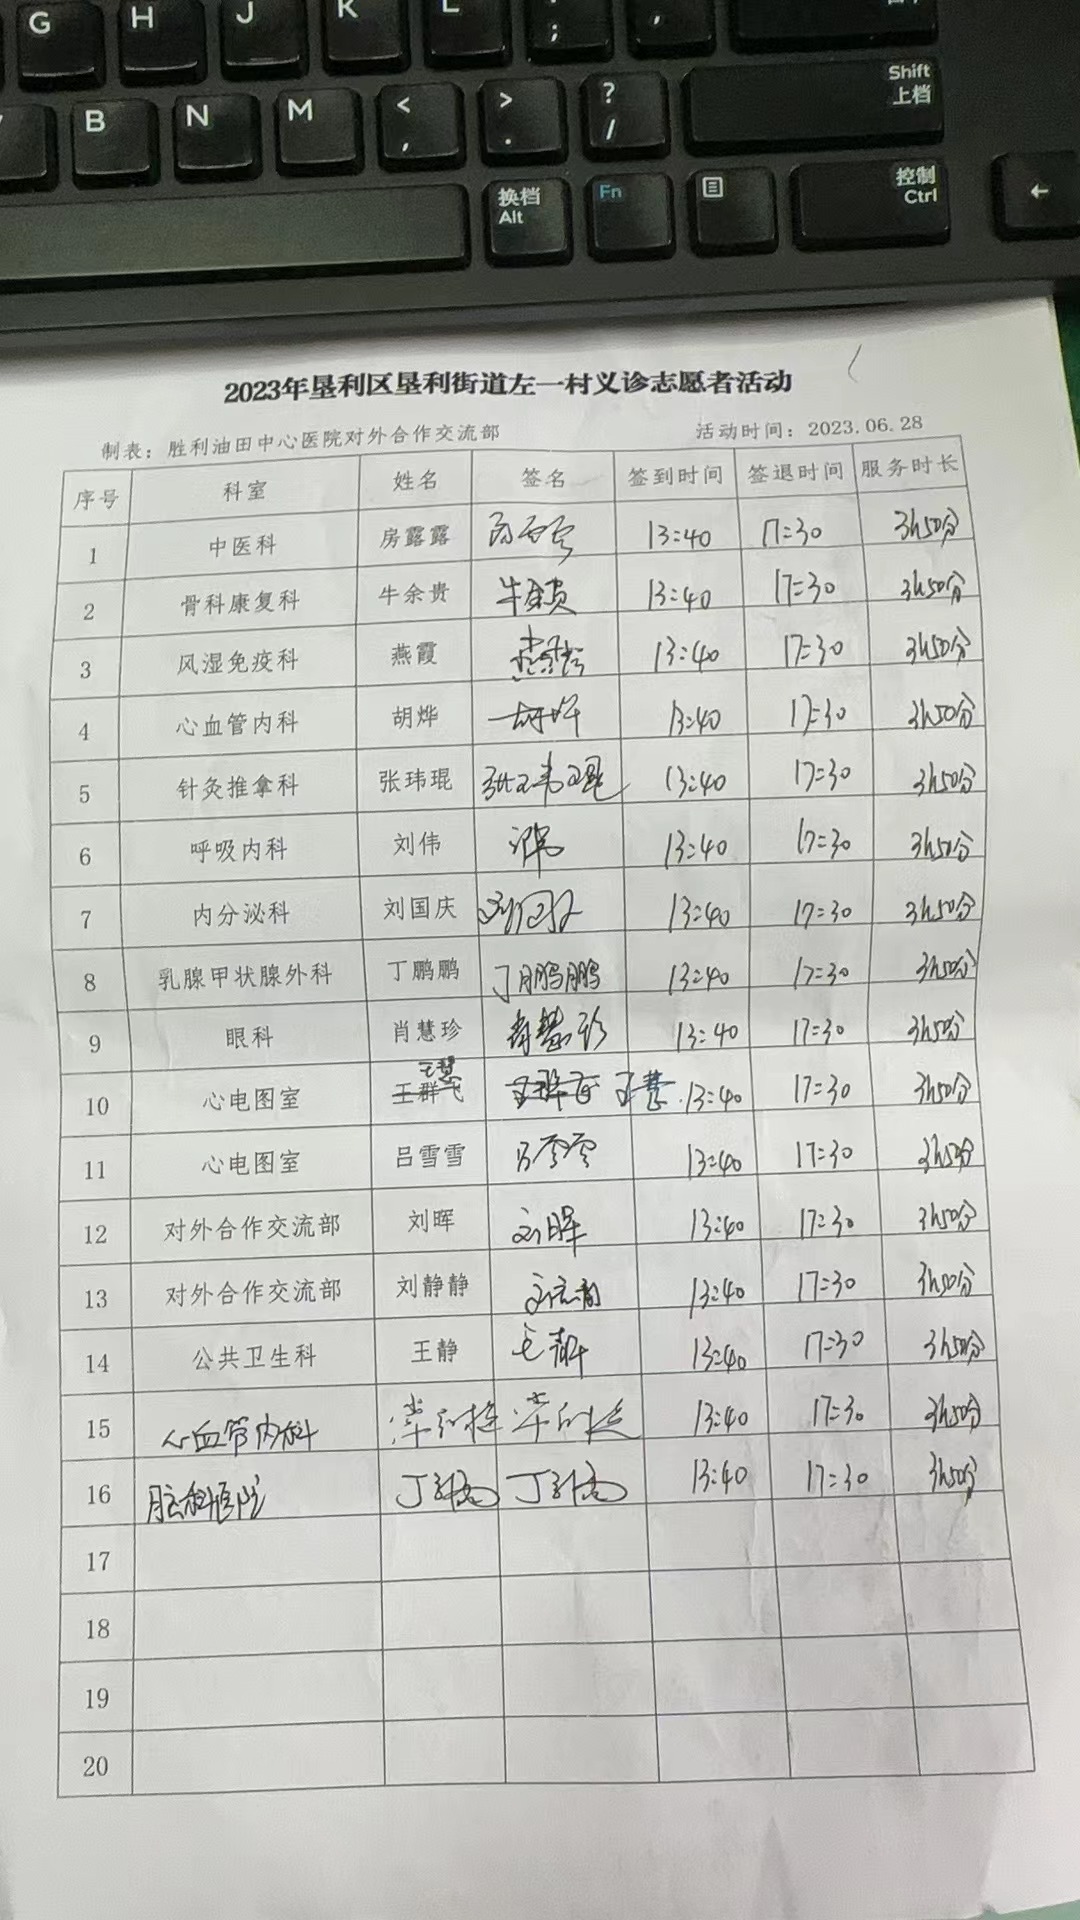 G H J K L ; ,
B N M < , > . ? / Shift 上档
换档 Alt Fn 控制 Ctrl ←
2023年垦利区垦利街道左一村义诊志愿者活动
制表：胜利油田中心医院对外合作交流部 活动时间：2023.06.28
序号 科室 姓名 签名 签到时间 签退时间 服务时长
1 中医科 房露露 13:40 17:30 3h50分
2 骨科康复科 牛余贵 牛余贵 13:40 17:30 3h50分
3 风湿免疫科 燕霞 燕霞 13:40 17:30 3h50分
4 心血管内科 胡烨 胡烨 13:40 17:30 3h50分
5 针灸推拿科 张玮琨 张玮琨 13:40 17:30 3h50分
6 呼吸内科 刘伟 刘伟 13:40 17:30 3h50分
7 内分泌科 刘国庆 刘国庆 13:40 17:30 3h50分
8 乳腺甲状腺外科 丁鹏鹏 丁鹏鹏 13:40 17:30 3h50分
9 眼科 肖慧珍 肖慧珍 13:40 17:30 3h50分
王慧
10 心电图室 王群飞 王群飞 王慧 13:40 17:30 3h50分
11 心电图室 吕雪雪 吕雪雪 13:40 17:30 3h50分
12 对外合作交流部 刘晖 刘晖 13:40 17:30 3h50分
13 对外合作交流部 刘静静 13:40 17:30 3h50分
14 公共卫生科 王静 王静 13:40 17:30 3h50分
15 心血管内科 13:40 17:30 3h50分
16 脑科医院 13:40 17:30 3h50分
17
18
19
20